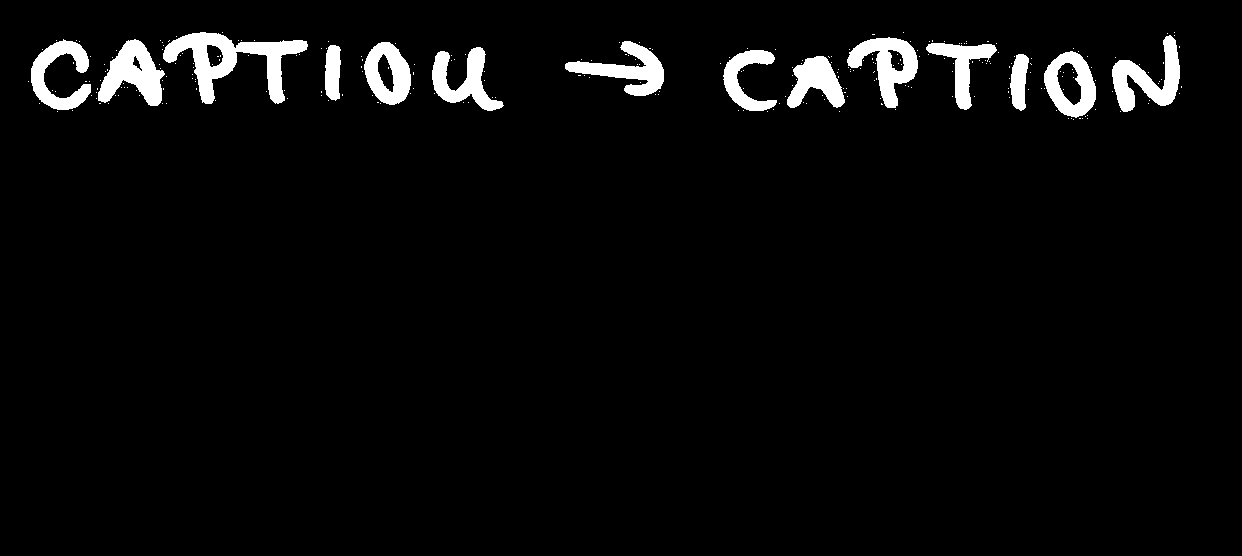 CAPTIOU → CAPTION